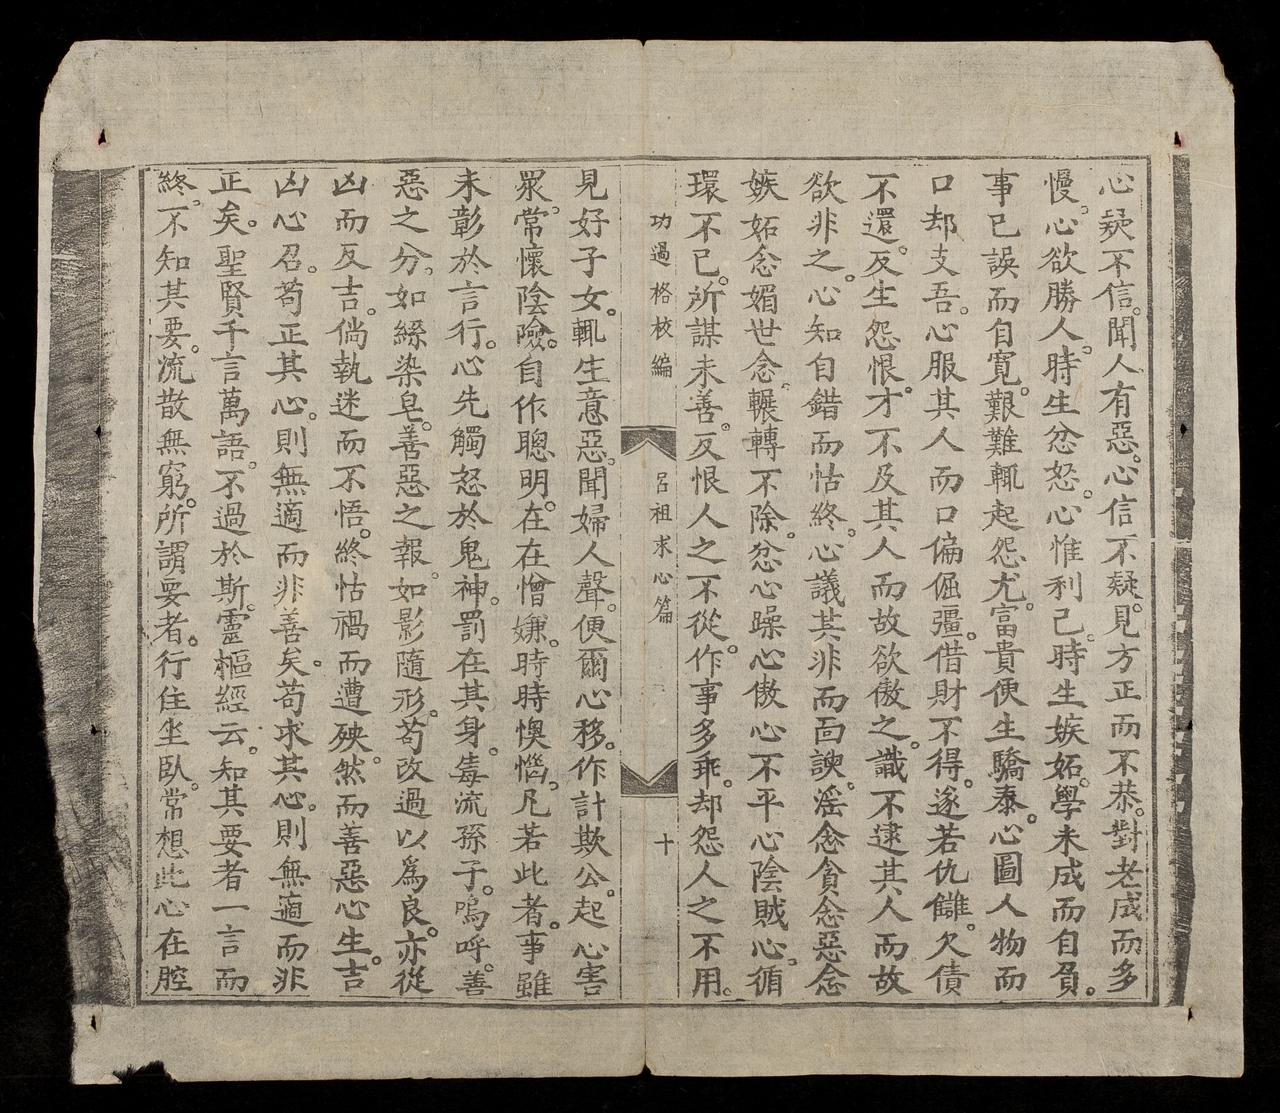 心疑不信。聞人有惡。心信不疑。見方正而不恭。對老成而多
慢。心欲勝人。時生忿怒。心惟利己。時生嫉妬。學未成而自負。
事已誤而自寬。艱難輒起怨尤。富貴便生驕泰。心圖人物而
口却支吾。心服其人而口偏倔彊。借財不得。遂若仇讎。欠債
不還。反生怨恨。才不及其人而故欲傲之。識不逮其人而故
欲非之。心知自錯而怙終。心議其非而面諛。淫念貪念惡念
嫉妬念媚世念。輾轉不除。忿心躁心傲心不平心陰賊心。循
環不已。所謀未善。反恨人之不從。作事多乖。却怨人之不用。
功過格校編 呂祖求心篇 十
見好子女。輒生意惡。聞婦人聲。便爾心移。作計欺公。起心害
眾。常懷陰險。自作聰明。在在憎嫌。時時懊惱。凡若此者。事雖
未彰於言行。心先觸怒於鬼神。罰在其身。毒流孫子。嗚呼。善
惡之分。如絲染皂。善惡之報。如影隨形。苟改過以為良。亦從
凶而反吉。倘執迷而不悟。終怙禍而遭殃。然而善惡心生。吉
凶心召。苟正其心。則無適而非善矣。苟求其心。則無適而非
正矣。聖賢千言萬語。不過於斯。靈樞經云。知其要者一言而
終。不知其要。流散無窮。所謂要者。行住坐臥。常想此心在腔